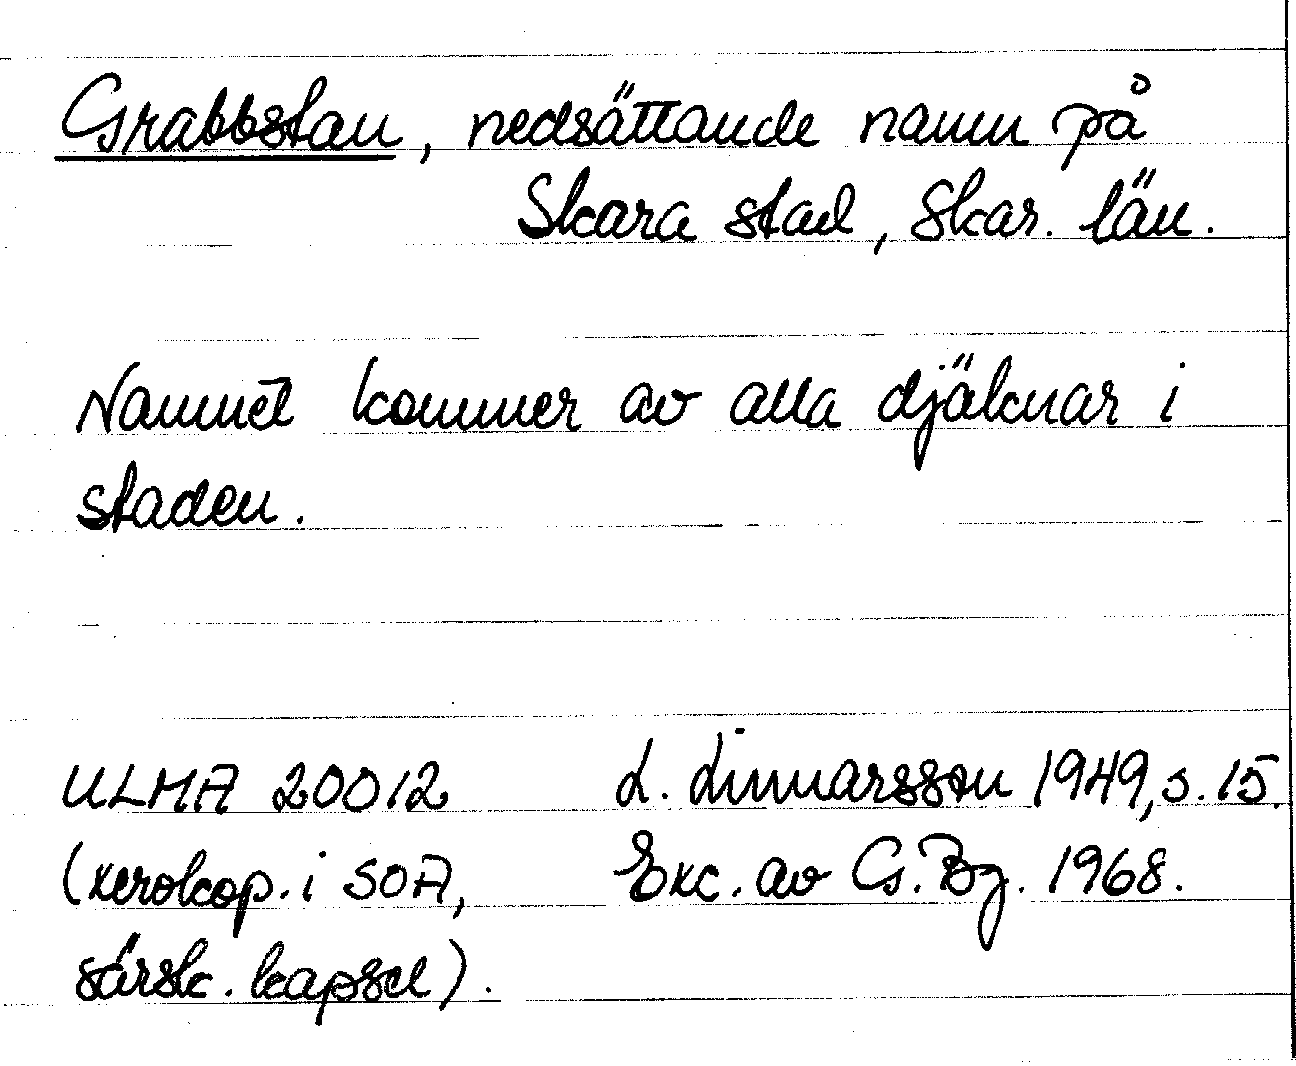 Grabbstan, nedsättande namn på
Skara stad, Skar. län.
Namnet kommer av alla djäknar i
staden.
ULMA 20012 L. Linnarsson 1949, s. 15.
(xerokop. i SOA, Exc. av G. Bg. 1968.
särsk. kapsel).